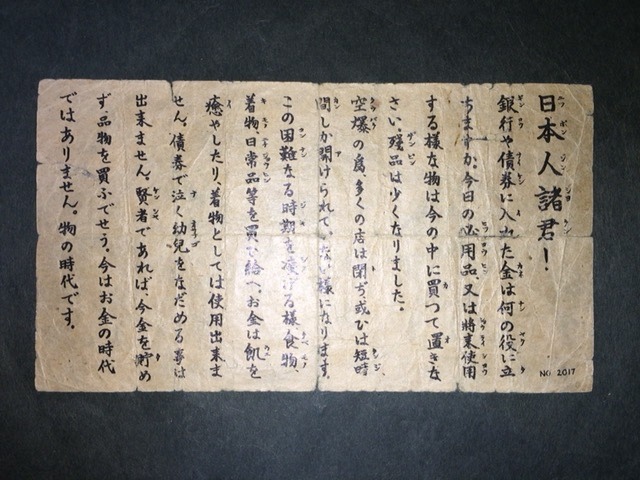 日本人諸君!
銀行や債券に入れた金は何の役に立
ちますか。今日の必用品、又は將来使用
する様な物は今の中に買つて置きな
さい。残品は少くなりました。
空爆の為、多くの店は閉ぢ或ひは短時
間しか開けられてゐない様になります。
この困難なる時期を凌げる様食物
着物、日常品等を買て給へ。お金は飢を
癒やしたり、着物としては使用出来ま
せん。債券で泣く幼兒をなだめる事は
出来ません。賢者であれば、今金を貯め
ず、品物を買ふでせう。今はお金の時代
ではありません。物の時代です。
NO. 2017